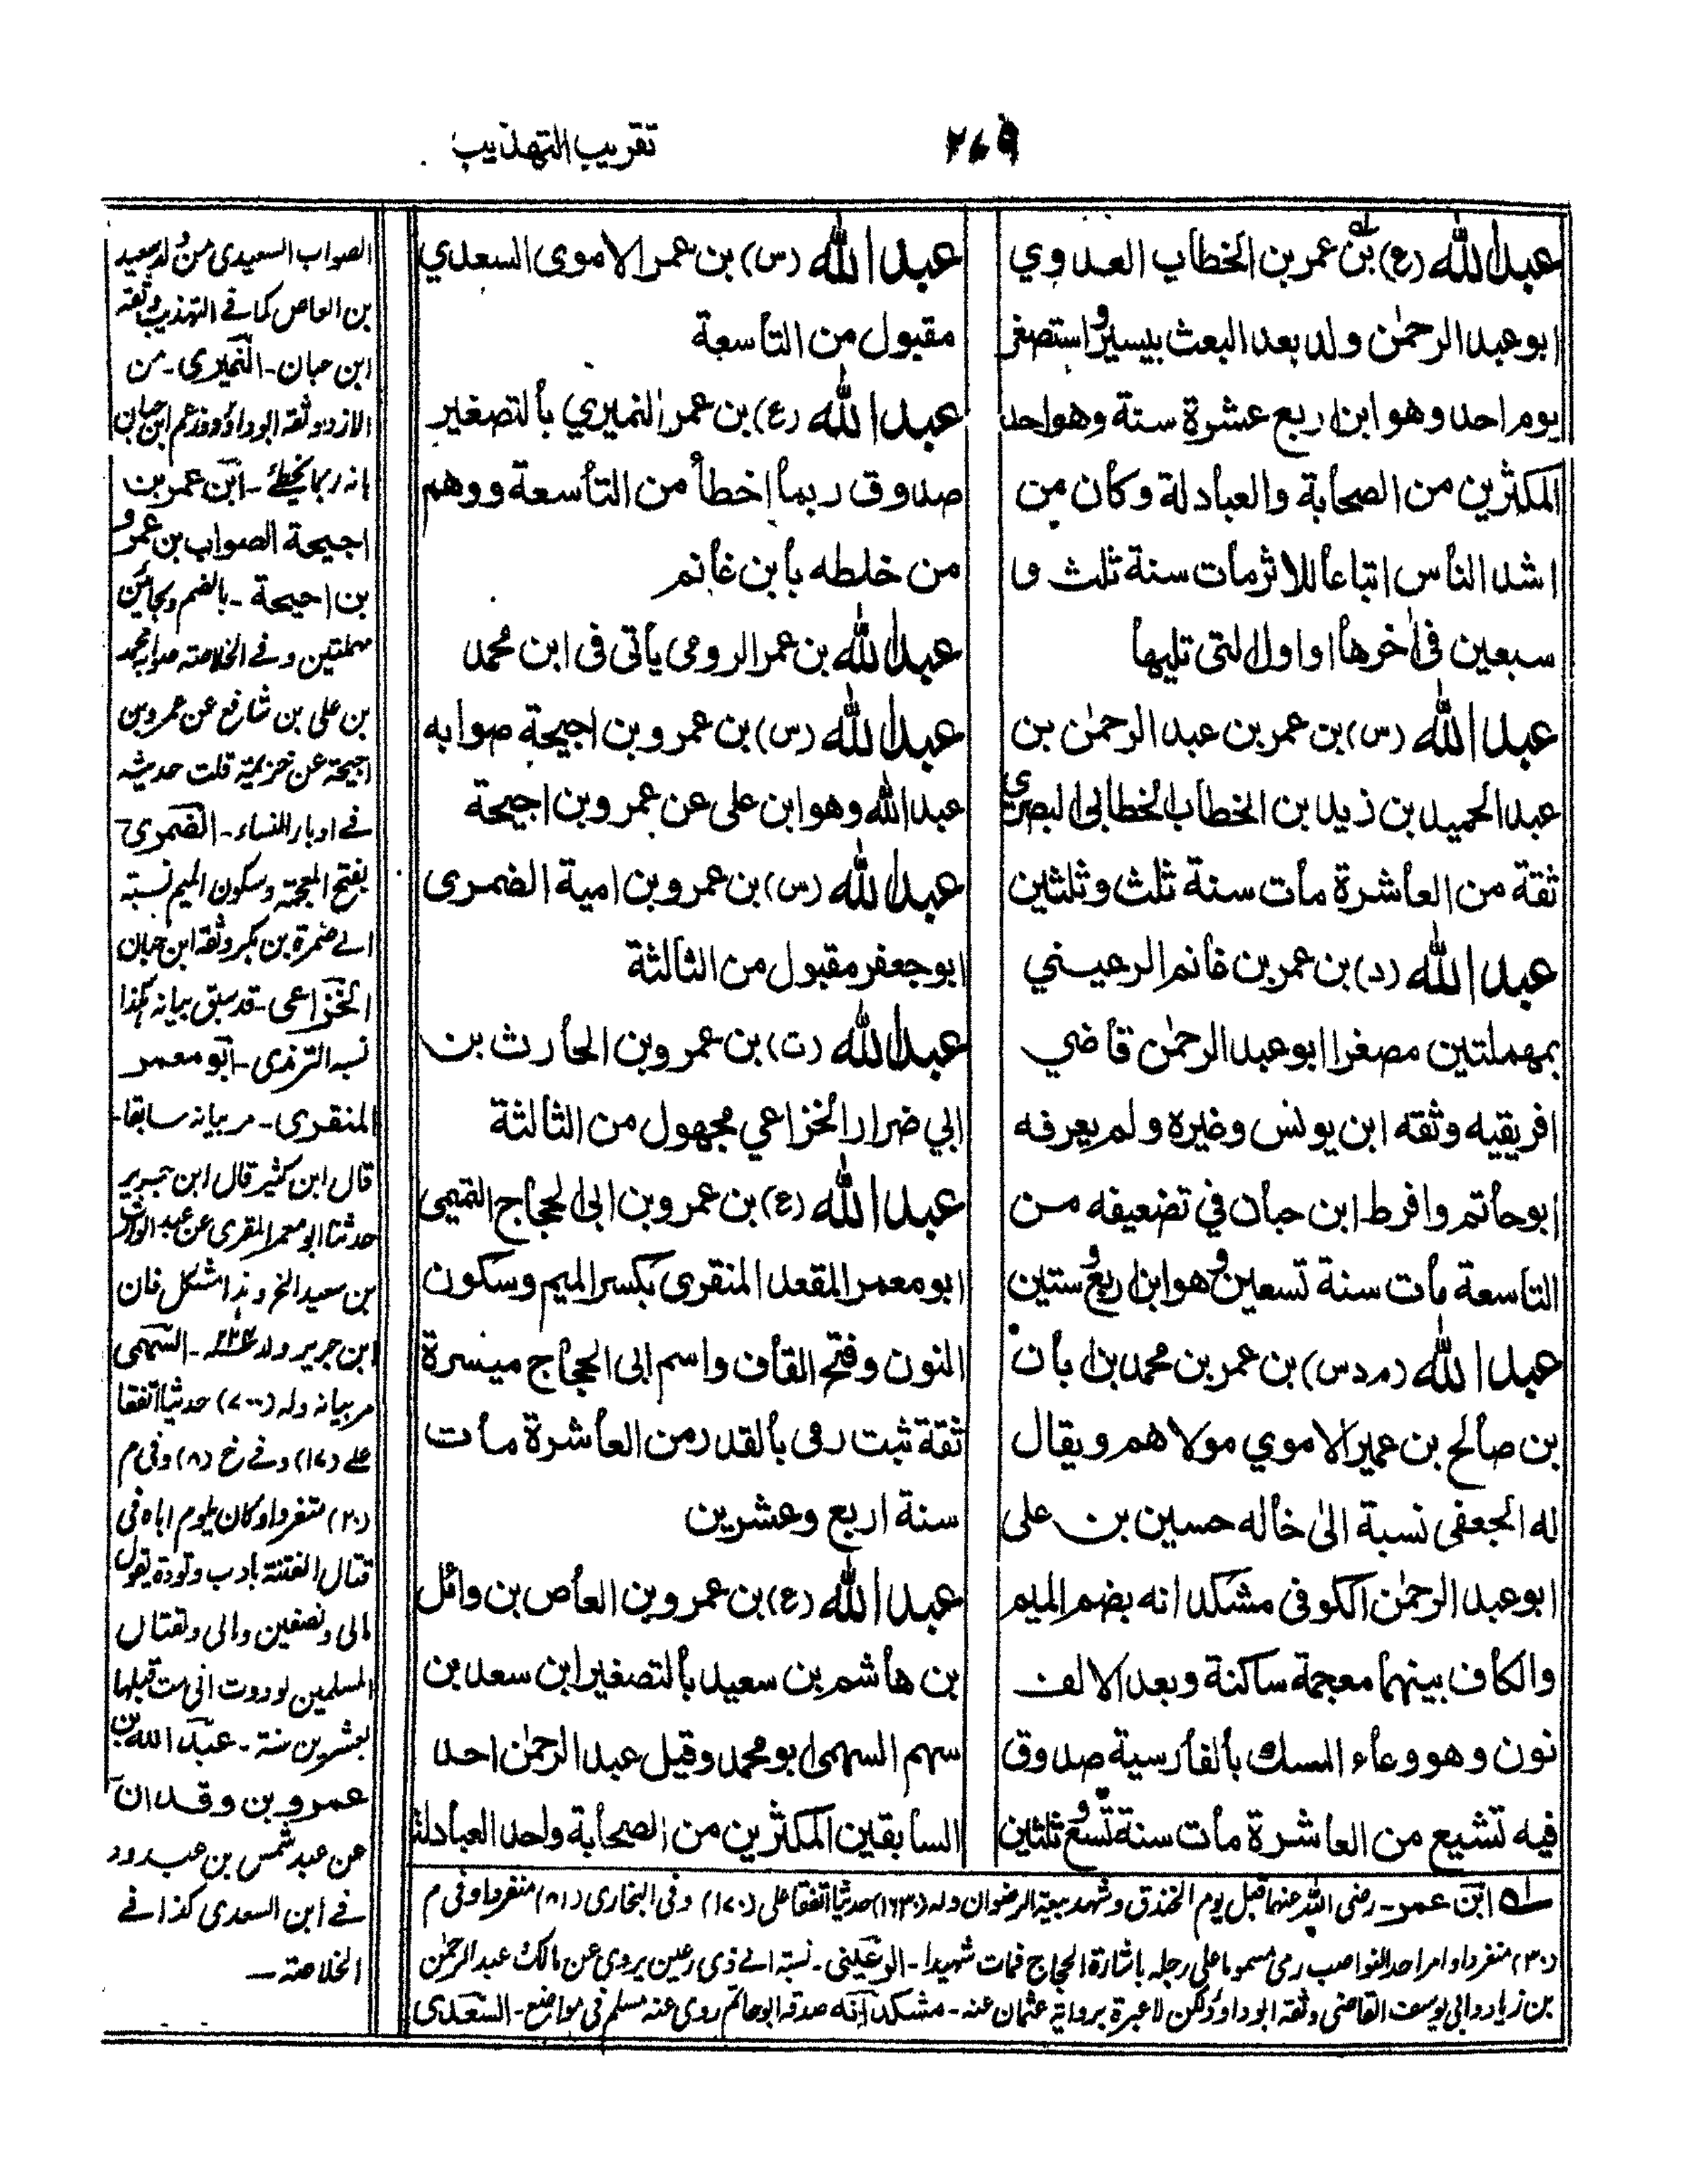 ٢٦٩
تقريب التهذيب
عبد الله (ع) بن عمر بن الخطاب العدوي
ابو عبد الرحمٰن ولد بعد البعث بيسير و استصغر
يوم احد وهو ابن اربع عشرة سنة وهو احد
المكثرين من الصحابة والعبادلة وكان من
اشد الناس اتباعا للاثر مات سنة ثلث و
سبعين فى اٰخرها او اول التى تليها
عبد الله (س) بن عمر بن عبد الرحمٰن بن
عبد الحميد بن زيد بن الخطاب الخطابى البصرى
ثقة من العاشرة مات سنة ثلث و ثلثين
عبد الله (د) بن عمر بن غانم الرعيني
بمهملتين مصغرا ابو عبد الرحمٰن قاضي
افريقيه وثقه ابن يونس وغيره ولم يعرفه
ابو حاتم وافرط ابن حبان في تضعيفه من
التاسعة مات سنة تسعين وهو ابن اربع و ستين
عبد الله (م د س) بن عمر بن محمد بن ابان
بن صالح بن عمير الاموي مولاهم ويقال
له الجعفى نسبة الىٰ خاله حسين بن على
ابو عبد الرحمٰن الكوفى مشكدانه بضم الميم
والكاف بينهما معجمة ساكنة وبعد الالف
نون وهو وعاء المسك بالفارسية صدوق
فيه تشيع من العاشرة مات سنة تسع و ثلثين
عبد الله (س) بن عمر الاموى السعدي
مقبول من التاسعة
عبد الله (ع) بن عمر النميري بالتصغير
صدوق ربما اخطأ من التاسعة ووهم
من خلطه بابن غانم
عبد الله بن عمر الرومى يأتى فى ابن محمد
عبد الله (س) بن عمرو بن اجيحة صوابه
عبد الله وهو ابن على عن عمرو بن اجيحة
عبد الله (س) بن عمرو بن امية الضمرى
ابو جعفر مقبول من الثالثة
عبد الله (ت) بن عمرو بن الحارث بن
ابي ضرار الخزاعي مجهول من الثالثة
عبد الله (ع) بن عمرو بن ابى الحجاج التميمى
ابو معمر المقعد المنقرى بكسر الميم وسكون
النون وفتح القاف واسم ابى الحجاج ميسرة
ثقة ثبت رمى بالقدر من العاشرة مات
سنة اربع وعشرين
عبد الله (ع) بن عمرو بن العاص بن وائل
بن هاشم بن سعيد بالتصغير ابن سعد بن
سهم السهمى ابو محمد وقيل عبد الرحمٰن احد
السابقين المكثرين من الصحابة واحد العبادلة
الصواب السعيدى من ولد سعيد
بن العاص كما فے التهذيب وثقه
ابن حبان ـ النميرى ـ من
الازد وثقه ابو داؤد وزعم ابن حبان
انه ربما يخطئ ـ ابن عمر بن
اجيحة الصواب بن عمرو
بن احيحة ـ بالضم وبحائين
مهملتين وفے الخلاصته صوابه محمد
بن على بن شافع عن عمرو بن
اجيحة عن خزيمة قلت حديثه
فے ادبار النساء ـ الضمرى
بفتح المعجمة وسكون الميم نسبته
الے ضمرة بن بكر وثقه ابن حبان
الخزاعى ـ قد سبق بيانه كذا
نسبه الترمذى ـ ابو معمر
المنقرى ـ مر بيانه سابقا ـ
قال ابن كثير قال ابن جرير
حدثنا ابو معمر المقرى عن عبد الوارث
بن سعيد الخ وهذا مشكل فان
ابن جرير ولد ٢٢٤ـ السهمى
مر بيانه وله (٧٠٠) حديثا اتفقا
علے (١٧) وفے خ (٨) وفى م
(٢٠) متفردا وكان يلوم اباه فى
قتال الفتنة بادب وتودة يقول
مالى ولصفين ومالى ولقتال
المسلمين لوددت انى مت قبلها
بعشرين سنة ـ عبد الله بن
عمرو بن وقدان
عن عبد شمس بن عبد ود
فے ابن السعدى كذا فے
الخلاصته ـ
له ابن عمر ـ رضى الله عنهما قبل يوم الخندق وشهد بيعة الرضوان وله (١٦٣٠) حديثا اتفقا على (١٧٠) وفى البخارى (٨١) منفردا وفى م
(٣٠) متفردا وامر احد النواصب رمى مسموما على رجله باشارة الحجاج فمات شهيدا ـ الرعينى ـ نسبة الے ذى رعين يروى عن مالك عبد الرحمٰن
بن زياد وابى يوسف القاضى وثقه ابو داؤد ولكن لا عبرة برواية عثمان عنه ـ مشكدانه صدقه ابو حاتم روى عنه مسلم فى مواضع ـ السعدى